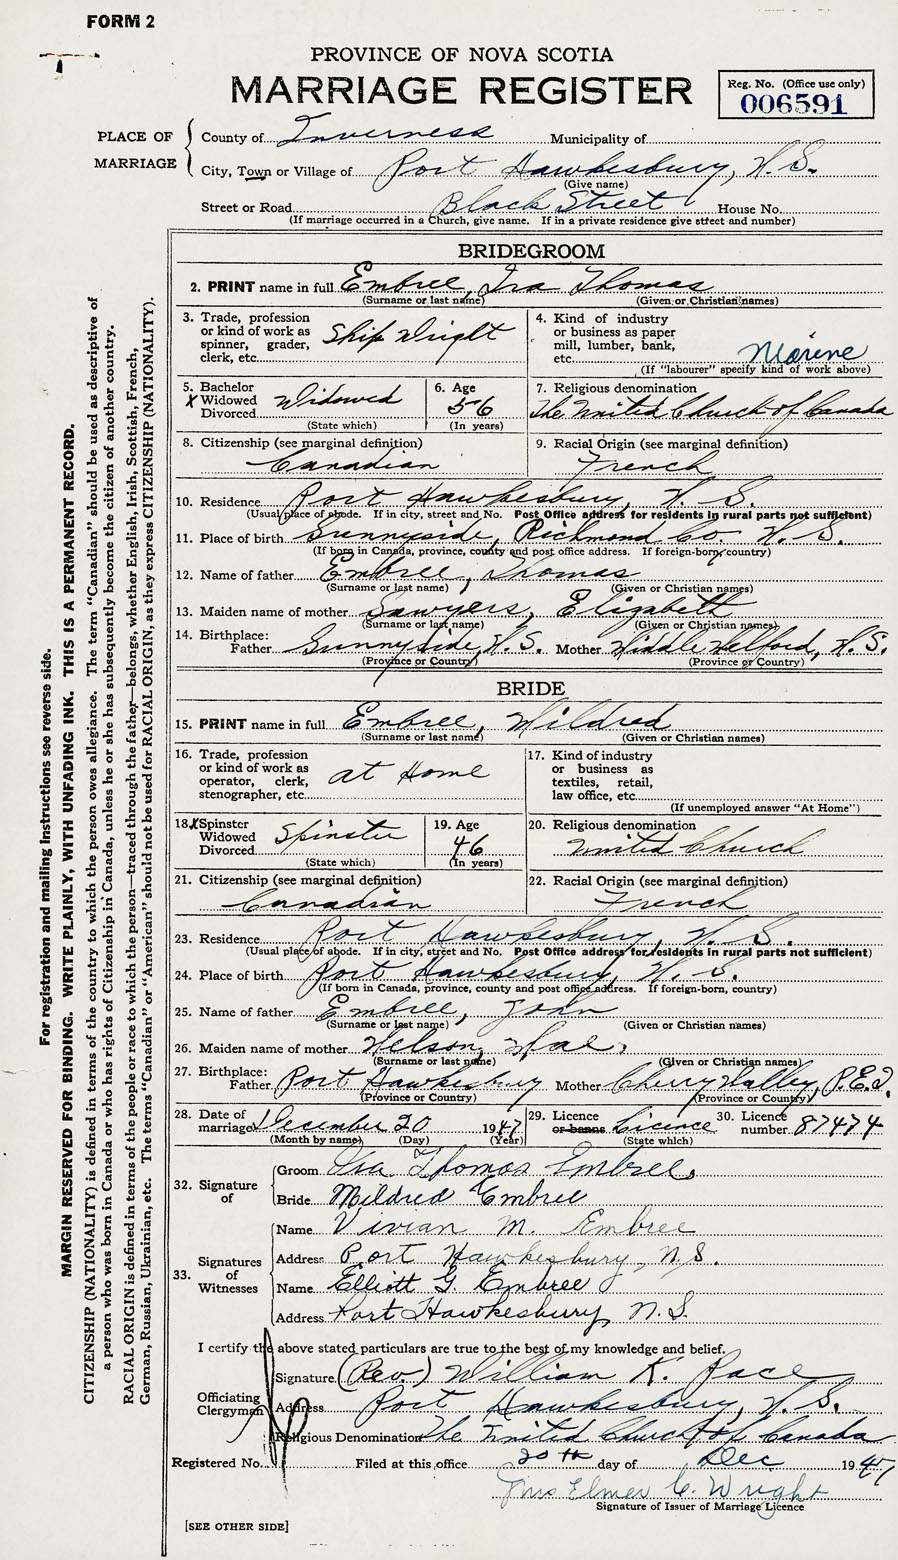 FORM 2
PROVINCE OF NOVA SCOTIA
MARRIAGE REGISTER
Reg. No. (Office use only)
006591
PLACE OF MARRIAGE
County of Inverness Municipality of
City, Town or Village of Port Hawkesbury, N.S.
(Give name)
Street or Road Black Street House No.
(If marriage occurred in a Church, give name. If in a private residence give street and number)
BRIDEGROOM
2. PRINT name in full Embree, Ira Thomas
(Surname or last name) (Given or Christian names)
3. Trade, profession or kind of work as spinner, grader, clerk, etc. Ship Wright
4. Kind of industry or business as paper mill, lumber, bank, etc. Marine
(If "labourer" specify kind of work above)
5. Bachelor X Widowed Divorced Widowed
(State which)
6. Age 56
(In years)
7. Religious denomination
The United Church of Canada
8. Citizenship (see marginal definition)
Canadian
9. Racial Origin (see marginal definition)
French
10. Residence Port Hawkesbury, N.S.
(Usual place of abode. If in city, street and No. Post Office address for residents in rural parts not sufficient)
11. Place of birth Sunnyside, Richmond Co. N.S.
(If born in Canada, province, county and post office address. If foreign-born, country)
12. Name of father Embree, Thomas
(Surname or last name) (Given or Christian names)
13. Maiden name of mother Sawyers, Elizabeth
(Surname or last name) (Given or Christian names)
14. Birthplace:
Father Sunnyside, N.S. Mother Middle Melford, N.S.
(Province or Country) (Province or Country)
BRIDE
15. PRINT name in full Embree, Mildred
(Surname or last name) (Given or Christian names)
16. Trade, profession or kind of work as operator, clerk, stenographer, etc. at Home
17. Kind of industry or business as textiles, retail, law office, etc.
(If unemployed answer "At Home")
18. X Spinster Widowed Divorced Spinster
(State which)
19. Age 46
(In years)
20. Religious denomination
United Church
21. Citizenship (see marginal definition)
Canadian
22. Racial Origin (see marginal definition)
French
23. Residence Port Hawkesbury, N.S.
(Usual place of abode. If in city, street and No. Post Office address for residents in rural parts not sufficient)
24. Place of birth Port Hawkesbury, N.S.
(If born in Canada, province, county and post office address. If foreign-born, country)
25. Name of father Embree, John
(Surname or last name) (Given or Christian names)
26. Maiden name of mother Nelson, Mae,
(Surname or last name) (Given or Christian names)
27. Birthplace:
Father Port Hawkesbury Mother Cherry Valley, P.E.I.
(Province or Country) (Province or Country)
28. Date of marriage December 20 1947
(Month by name) (Day) (Year)
29. Licence or banns Licence
(State which)
30. Licence number 87474
32. Signature of
Groom Ira Thomas Embree,
Bride Mildred Embree
33. Signatures of Witnesses
Name Vivian M. Embree
Address Port Hawkesbury, N.S.
Name Elliott G. Embree
Address Port Hawkesbury, N.S.
I certify the above stated particulars are true to the best of my knowledge and belief.
Officiating Clergyman
Signature (Rev.) William K. Pace
Address Port Hawkesbury, N.S.
Religious Denomination The United Church of Canada
Registered No. Filed at this office 20th day of Dec 1947
Mrs Elmer C. Wright
Signature of Issuer of Marriage Licence
[SEE OTHER SIDE]
For registration and mailing instructions see reverse side.
MARGIN RESERVED FOR BINDING. WRITE PLAINLY, WITH UNFADING INK. THIS IS A PERMANENT RECORD.
CITIZENSHIP (NATIONALITY) is defined in terms of the country to which the person owes allegiance. The term "Canadian" should be used as descriptive of
a person who was born in Canada or who has rights of Citizenship in Canada, unless he or she has subsequently become the citizen of another country.
RACIAL ORIGIN is defined in terms of the people or race to which the person—traced through the father—belongs, whether English, Irish, Scottish, French,
German, Russian, Ukrainian, etc. The terms "Canadian" or "American" should not be used for RACIAL ORIGIN, as they express CITIZENSHIP (NATIONALITY).